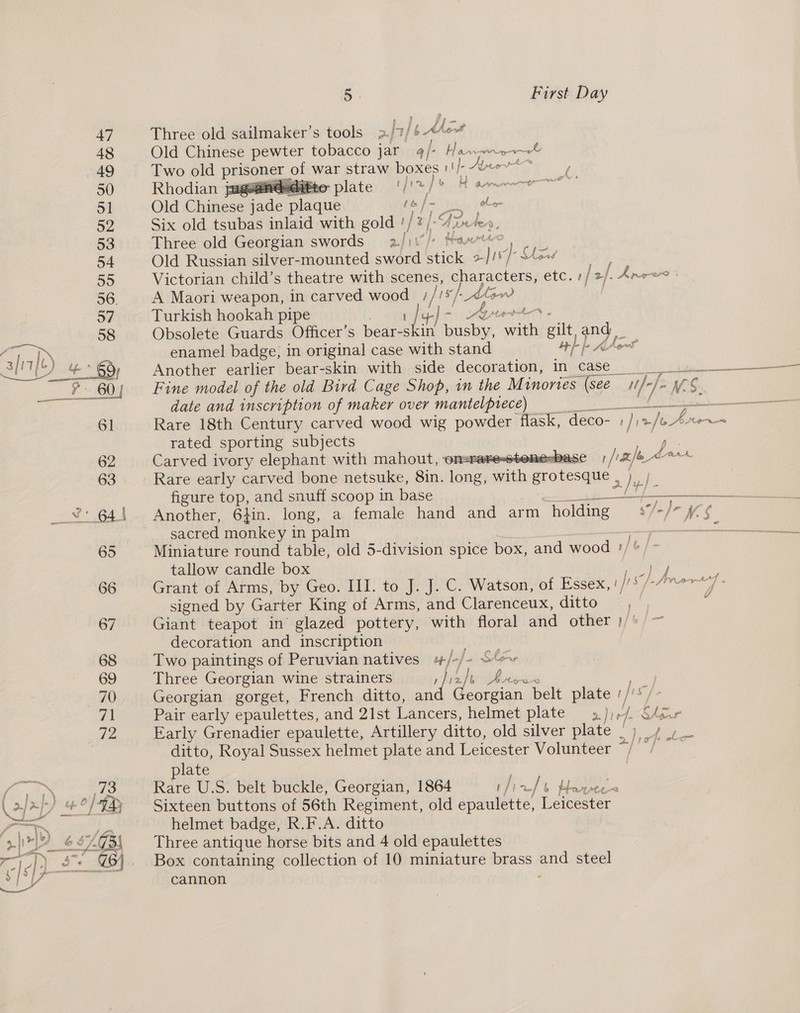 5 First Day
47 Three old sailmaker's tools 2/7/6
48 Old Chinese pewter tobacco jar 9/-
49 Two old prisoner of war straw boxes 11/-
50 Rhodian plate 1/12/6
51 Old Chinese jade plaque 16/-
52 Six old tsubas inlaid with gold 1/2/-
53 Three old Georgian swords
54 Old Russian silver-mounted sword stick
55 Victorian child's theatre with scenes, characters, etc. 1/2/-
56 A Maori weapon, in carved wood 1/15/-
57 Turkish hookah pipe 1/4/-
58 Obsolete Guards Officer's bear-skin busby, with gilt and
enamel badge, in original case with stand
59 Another earlier bear-skin with side decoration, in case
60 Fine model of the old Bird Cage Shop, in the Minories (see 11/-/- N.S.
date and inscription of maker over mantelpiece)
61 Rare 18th Century carved wood wig powder flask, deco- 1/12/6
rated sporting subjects
62 Carved ivory elephant with mahout, on rare stone base 1/12/6
63 Rare early carved bone netsuke, 8in. long, with grotesque
figure top, and snuff scoop in base
64 Another, 6½in. long, a female hand and arm holding 5/-/- N.S.
sacred monkey in palm
65 Miniature round table, old 5-division spice box, and wood 1/6/-
tallow candle box
66 Grant of Arms, by Geo. III. to J. J. C. Watson, of Essex, 1/15/-
signed by Garter King of Arms, and Clarenceux, ditto
67 Giant teapot in glazed pottery, with floral and other
decoration and inscription
68 Two paintings of Peruvian natives 4/-/-
69 Three Georgian wine strainers 1/12/6
70 Georgian gorget, French ditto, and Georgian belt plate 1/15/-
71 Pair early epaulettes, and 21st Lancers, helmet plate
72 Early Grenadier epaulette, Artillery ditto, old silver plate
ditto, Royal Sussex helmet plate and Leicester Volunteer
plate
73 Rare U.S. belt buckle, Georgian, 1864 1/12/6
74 Sixteen buttons of 56th Regiment, old epaulette, Leicester
helmet badge, R.F.A. ditto
75 Three antique horse bits and 4 old epaulettes
76 Box containing collection of 10 miniature brass and steel
cannon